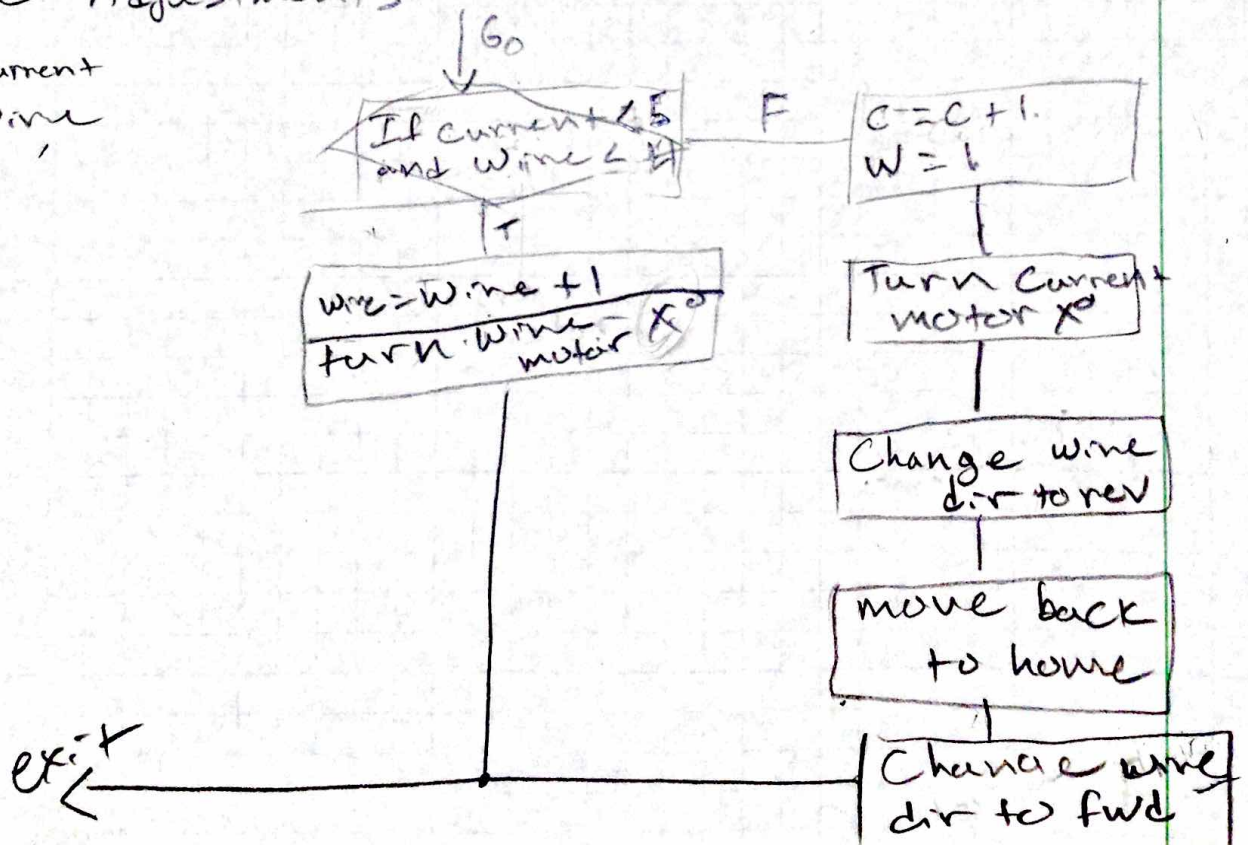 Adjustments
Go
If current < 5
and wire <
F
T
wire = wire + 1
turn wire
motor X°
C = C + 1
W = 1
Turn Current
motor X°
Change wire
dir to rev
move back
to home
Change wire
dir to fwd
exit